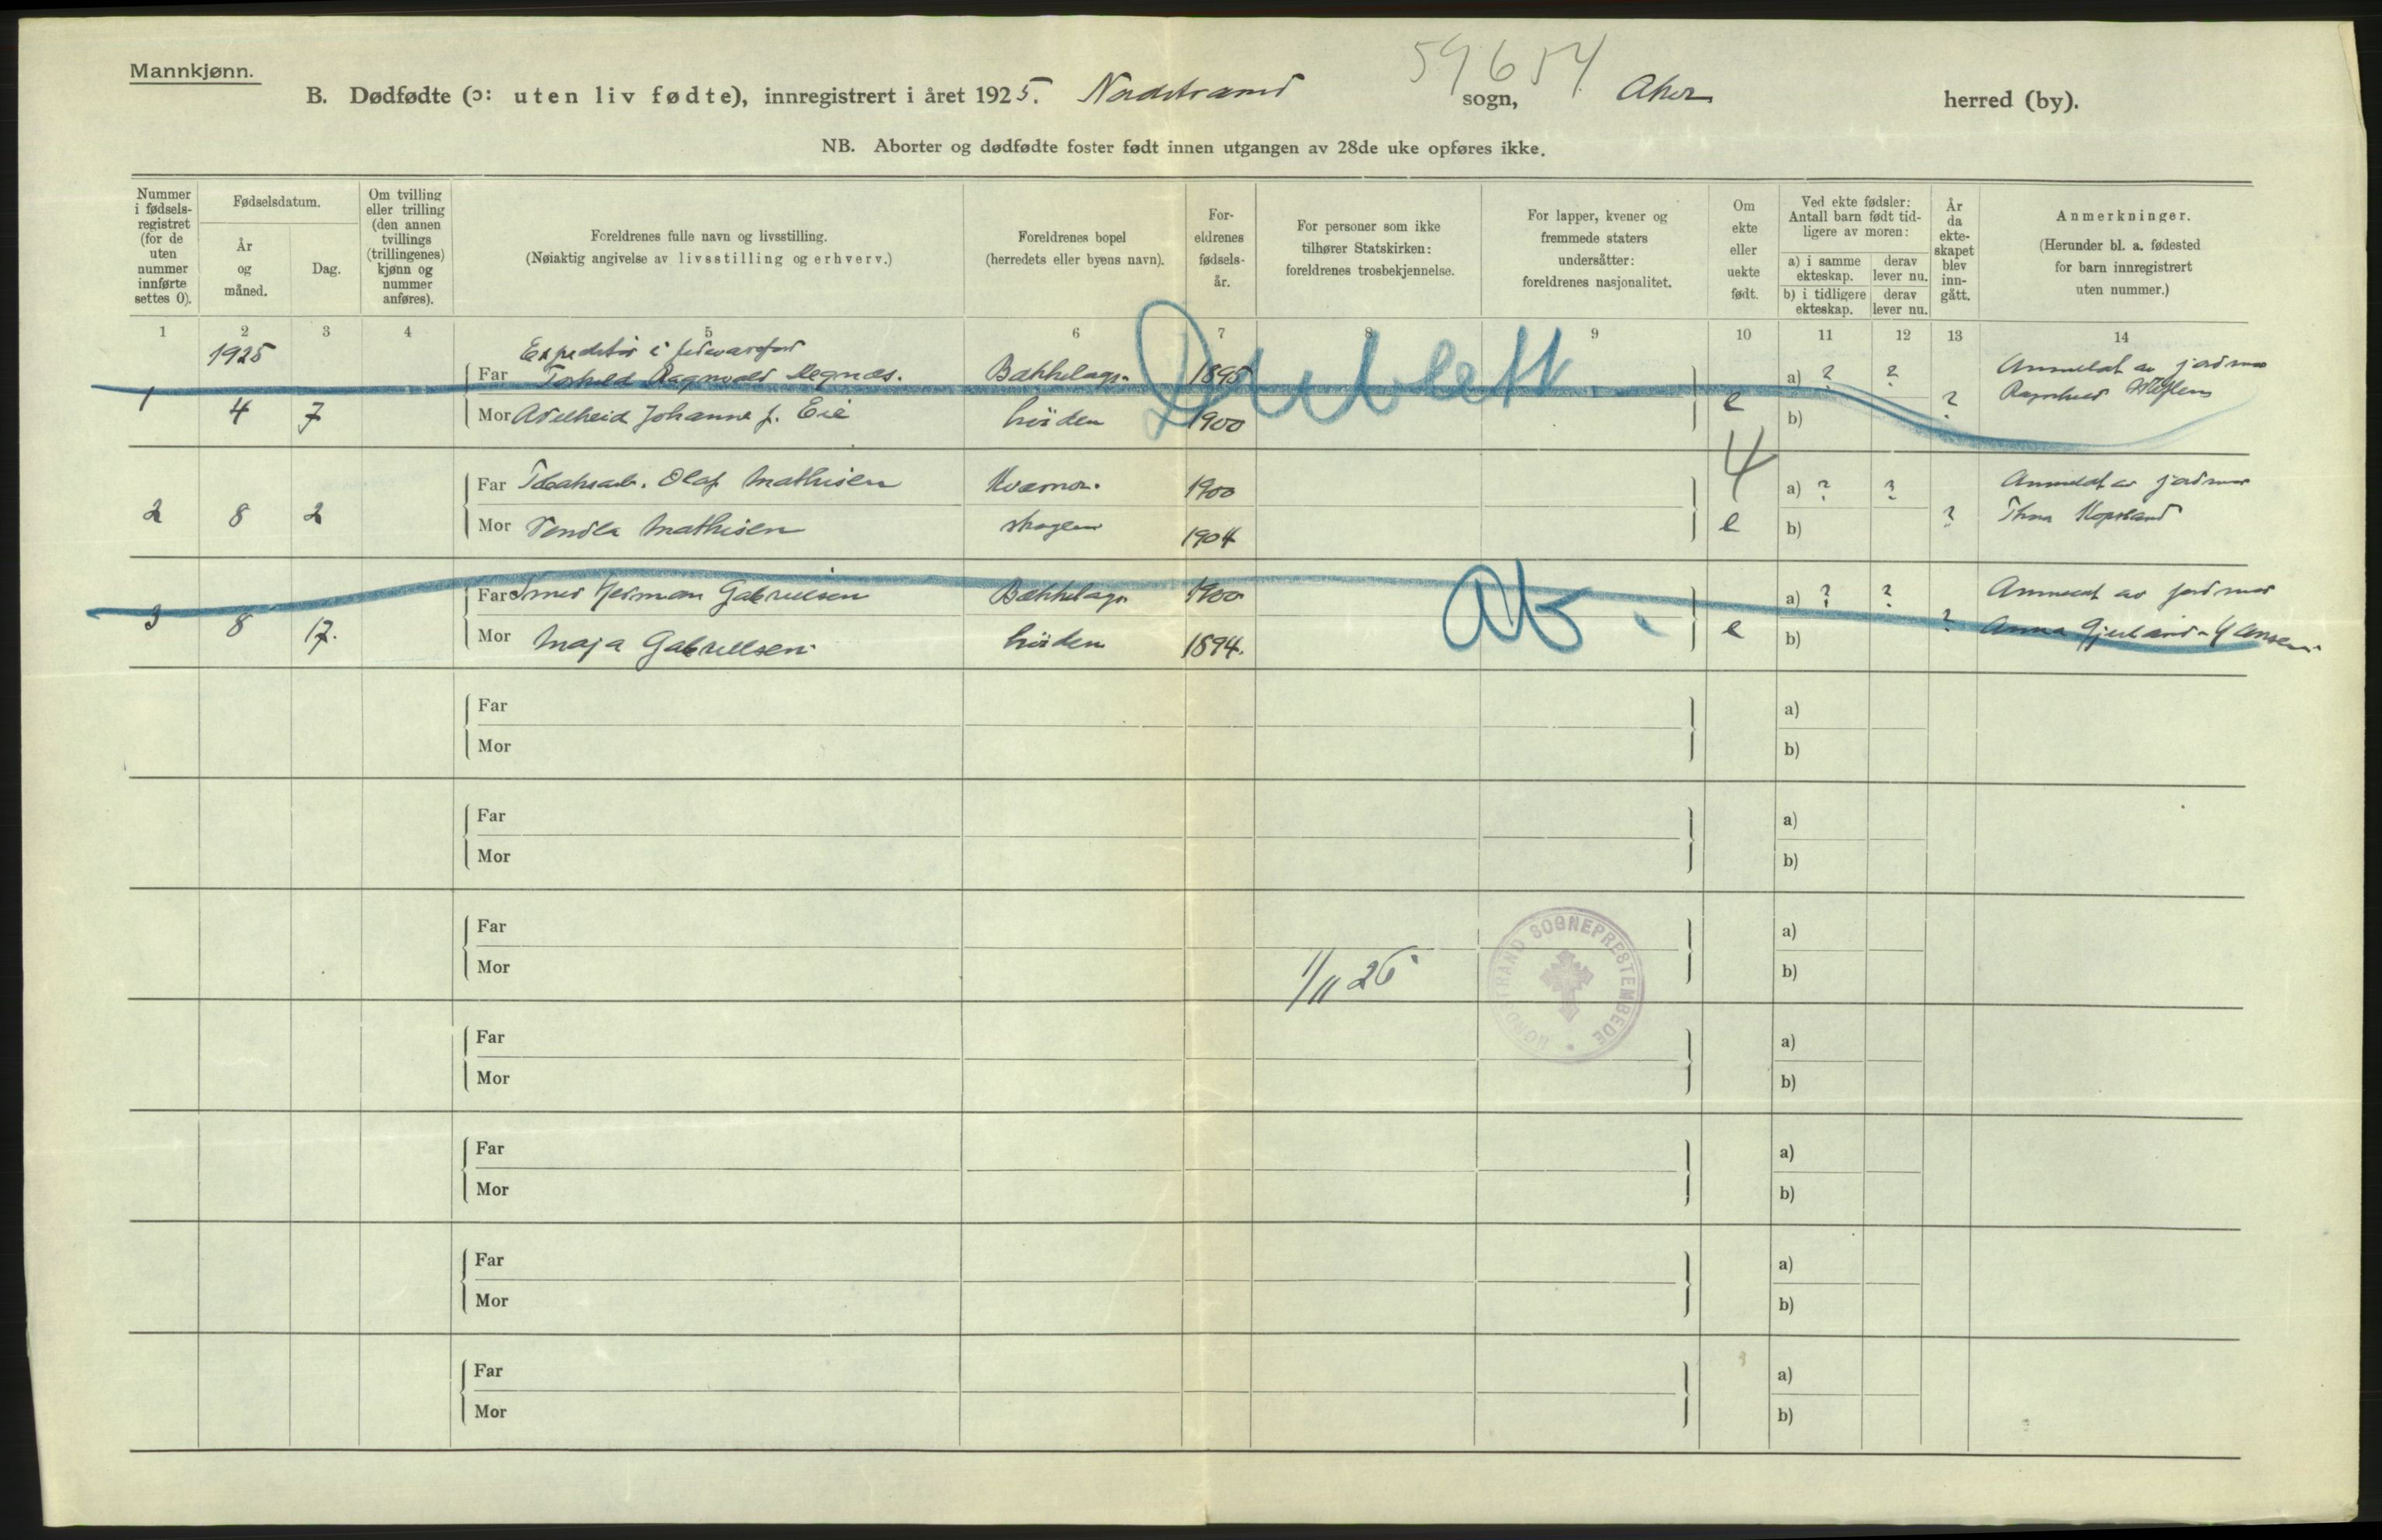 Mannkjønn.
59654
B. Dødfødte (ɔ: uten liv fødte), innregistrert i året 1925. Nordstrand sogn, Aker herred (by).
NB. Aborter og dødfødte foster født innen utgangen av 28de uke opføres ikke.
Nummer i fødsels- registret (for de uten nummer innførte settes 0).
Fødselsdatum.
År og måned.
Dag.
Om tvilling eller trilling (den annen tvillings (trillingenes) kjønn og nummer anføres).
Foreldrenes fulle navn og livsstilling.
(Nøiaktig angivelse av livsstilling og erhverv.)
Foreldrenes bopel
(herredets eller byens navn).
For- eldrenes fødsels- år.
For personer som ikke tilhører Statskirken: foreldrenes trosbekjennelse.
For lapper, kvener og fremmede staters undersåtter: foreldrenes nasjonalitet.
Om ekte eller uekte født.
Ved ekte fødsler: Antall barn født tid- ligere av moren:
a) i samme ekteskap.
derav lever nu.
b) i tidligere ekteskap.
derav lever nu.
År da ekte- skapet blev inn- gått.
Anmerkninger.
(Herunder bl. a. fødested for barn innregistrert uten nummer.)
1 2 3 4 5 6 7 8 9 10 11 12 13 14
1925
Expeditør i
Far Ragnvald Bækkelags- 1895 a) ? ? Anmeldt av jordmor
Dublett.
1 4 7 Mor Adelheid Johanne f. Eie høiden 1900 e b) ? Ragnhild
4
Far Olaf Mathisen Kværner- 1900 a) ? ? Anmeldt av jordmor
2 8 2 Mor Vendla Mathisen skogen 1904 e b) ? Thora
Far Herman Gabrielsen Bækkelags 1900 a) ? ? Anmeldt av jordmor
Ab.
3 8 17. Mor Maja Gabrielsen høiden 1894. e b) ? Anna Gjerland-Hansen
Far a)
Mor b)
Far a)
Mor b)
Far a)
Mor b)
1/11 26
NORDSTRAND SOGNEPRESTEMBEDE
Far a)
Mor b)
Far a)
Mor b)
Far a)
Mor b)
Far a)
Mor b)